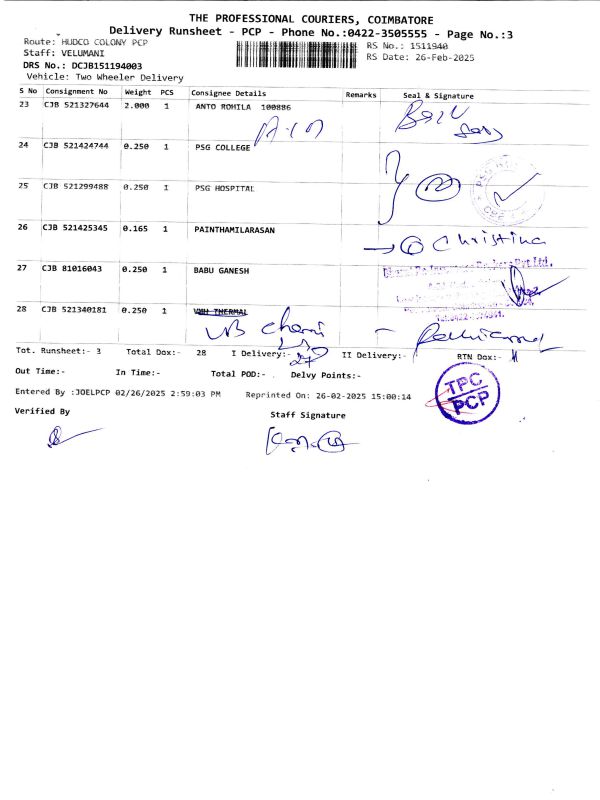 THE PROFESSIONAL COURIERS, COIMBATORE
Delivery Runsheet - PCP - Phone No.:0422-3505555 - Page No.:3
Route: HUDCO COLONY PCP
RS No.: 1511940
Staff: VELUMANI
RS Date: 26-Feb-2025
DRS No.: DCJB151194003
Vehicle: Two Wheeler Delivery
S No Consignment No Weight PCS Consignee Details Remarks Seal & Signature
23 CJB 521327644 2.000 1 ANTO ROHILA 100886
24 CJB 521424744 0.250 1 PSG COLLEGE
25 CJB 521299488 0.250 1 PSG HOSPITAL
26 CJB 521425345 0.165 1 PAINTHAMILARASAN
Christina
27 CJB 81016043 0.250 1 BABU GANESH
28 CJB 521340181 0.250 1 VMH THERMAL
Tot. Runsheet:- 3 Total Dox:- 28 I Delivery:- 27 II Delivery:- RTN Dox:-
Out Time:- In Time:- Total POD:- Delvy Points:-
Entered By :JOELPCP 02/26/2025 2:59:03 PM Reprinted On: 26-02-2025 15:00:14
TPC
PCP
Verified By
Staff Signature